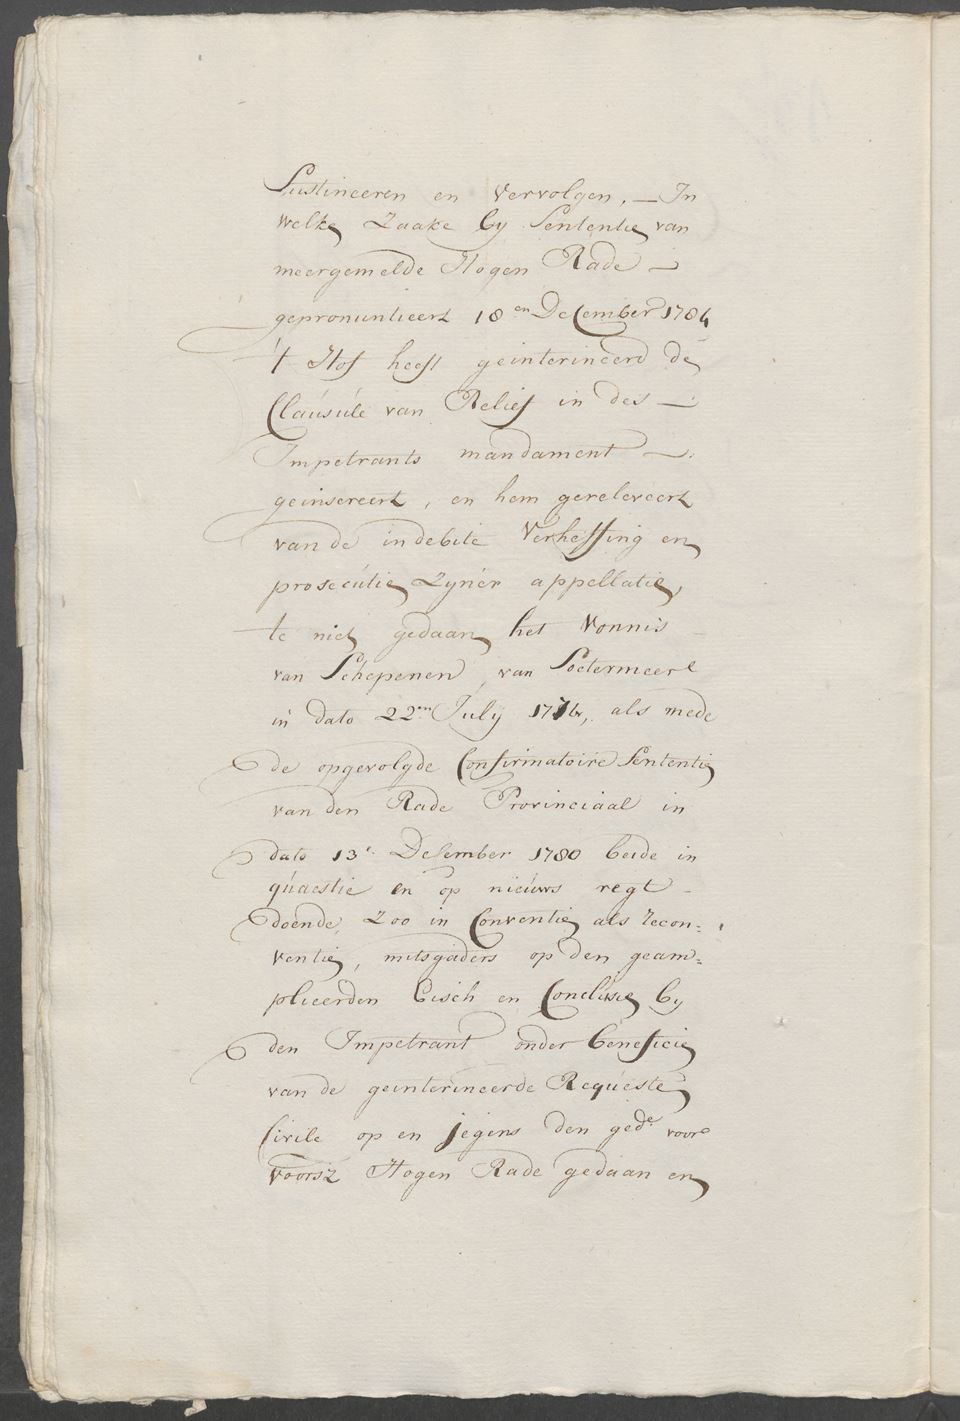 Sustineeren en vervolgen, — In
welke Zaake by Sententie van
meergemelde Hogen Rade —
gepronuntieert 18en December 1784
't Hof heeft geinterineerd de
Clausúle van Relief in des —
Impetrants mandament —
geinsereert, en hem gereleveert
van de indebite Verheffing en
prosecútie Zyner appellatie,
te niet gedaan het Vonnis
van Schepenen van Soetermeer
in dato 22en July 1776, als mede
de opgevolgde Confirmatoire Sententie
van den Rade Provinciaal in
dato 13e December 1780 beide in
qúaestie en op nieúws regt
doende, Zoo in Conventie als recon:
ventie, mitsgaders op den geam=
plieerden Eisch en Conclúsie by
den Impetrant onder beneficie
van de geinterineerde Reqúeste
Civile op en jegens den gede voor
voorsz Hogen Rade gedaan en